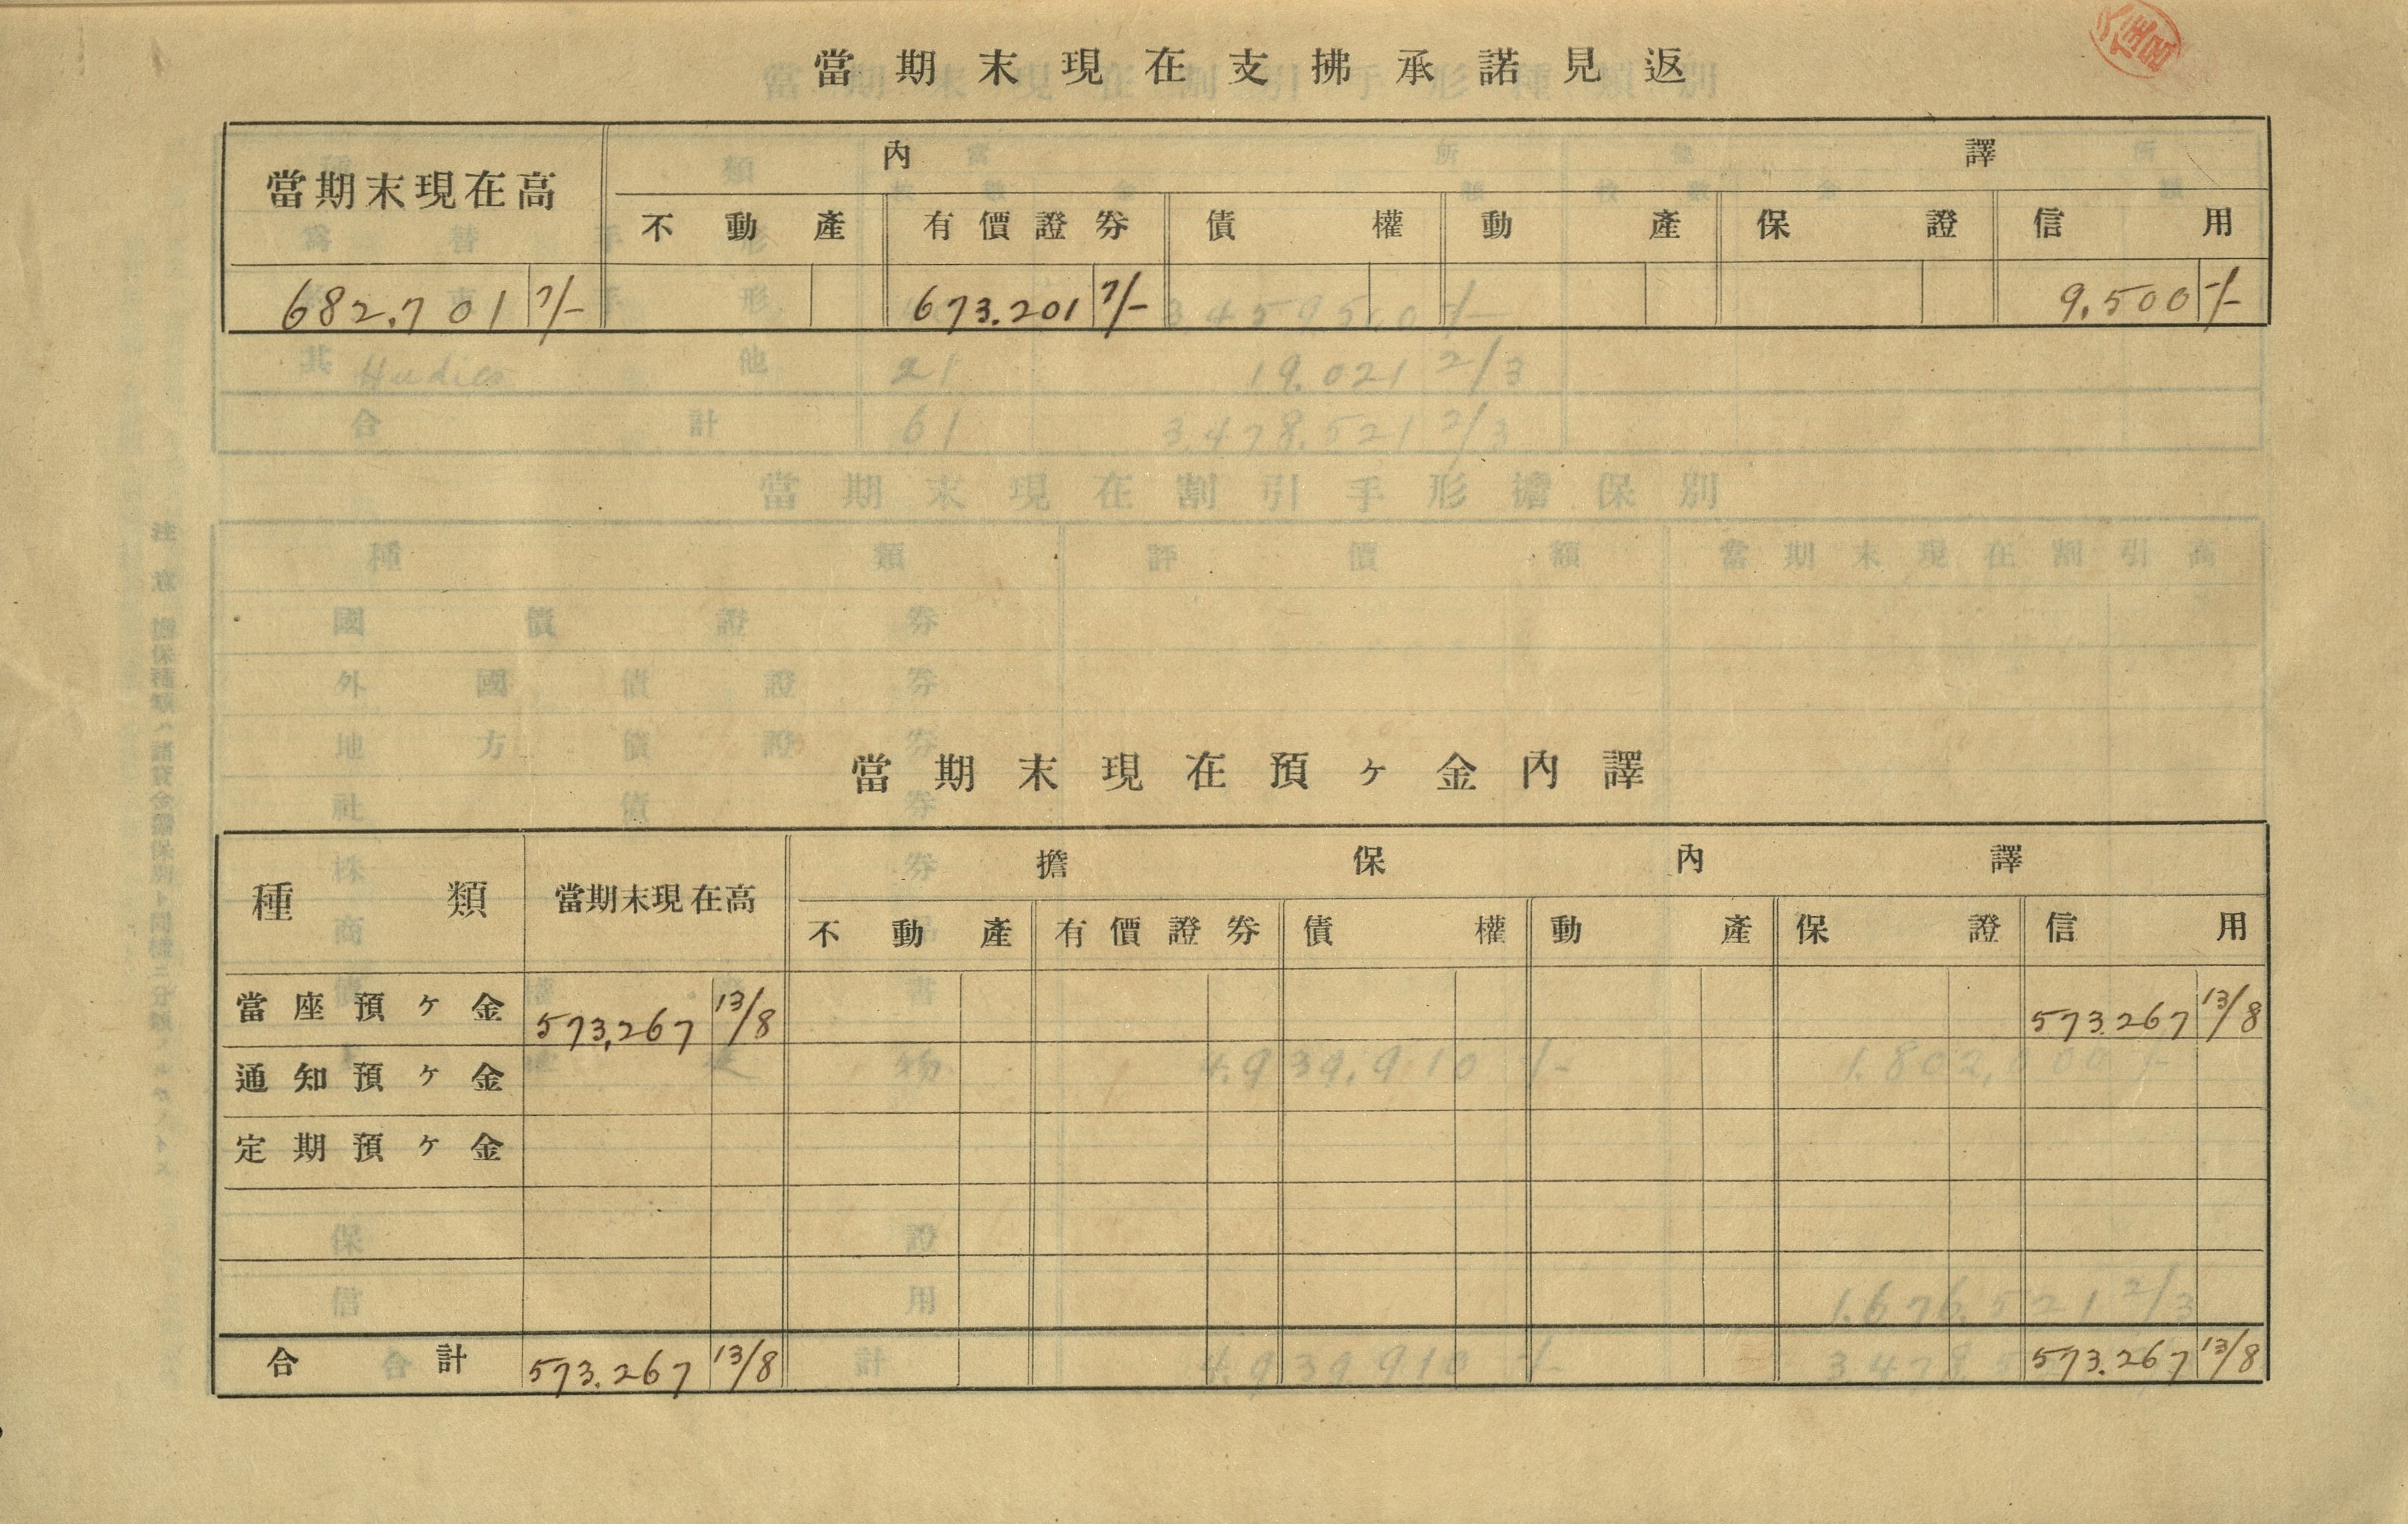 當期末現在支拂承諾見返
當期末現在高 內譯
不動產 有價證券 債權 動產 保證 信用
682.701 7/- 673.201 7/- 9.500 -/-
當期末現在預ヶ金內譯
種類 當期末現在高 擔保內譯
不動產 有價證券 債權 動產 保證 信用
當座預ヶ金 573,267 13/8 573.267 13/8
通知預ヶ金
定期預ヶ金
合計 573.267 13/8 573.267 13/8